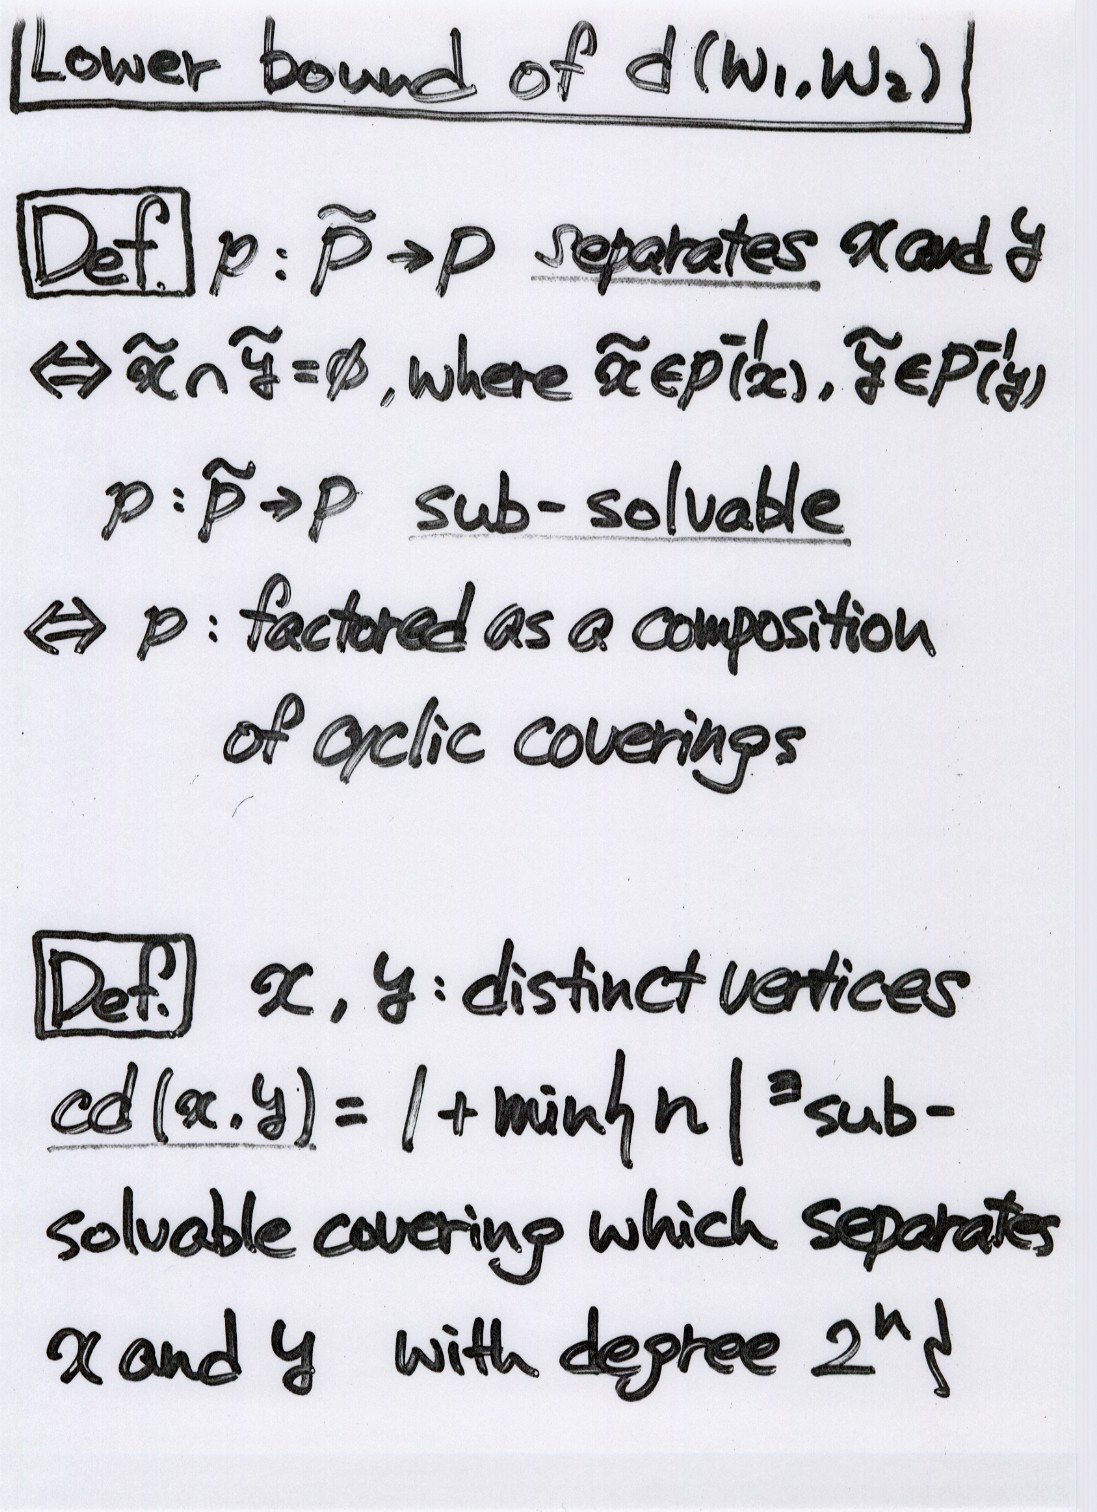 Lower bound of d(W₁,W₂)
Def. p: P̃→P separates x and y
⇔ x̃∩ỹ=∅, where x̃∈p⁻¹(x), ỹ∈p⁻¹(y)
p: P̃→P sub-solvable
⇔ p: factored as a composition
of cyclic coverings
Def. x, y: distinct vertices
cd(x,y) = 1 + min{n | ∃sub-
solvable covering which separates
x and y with degree 2ⁿ}